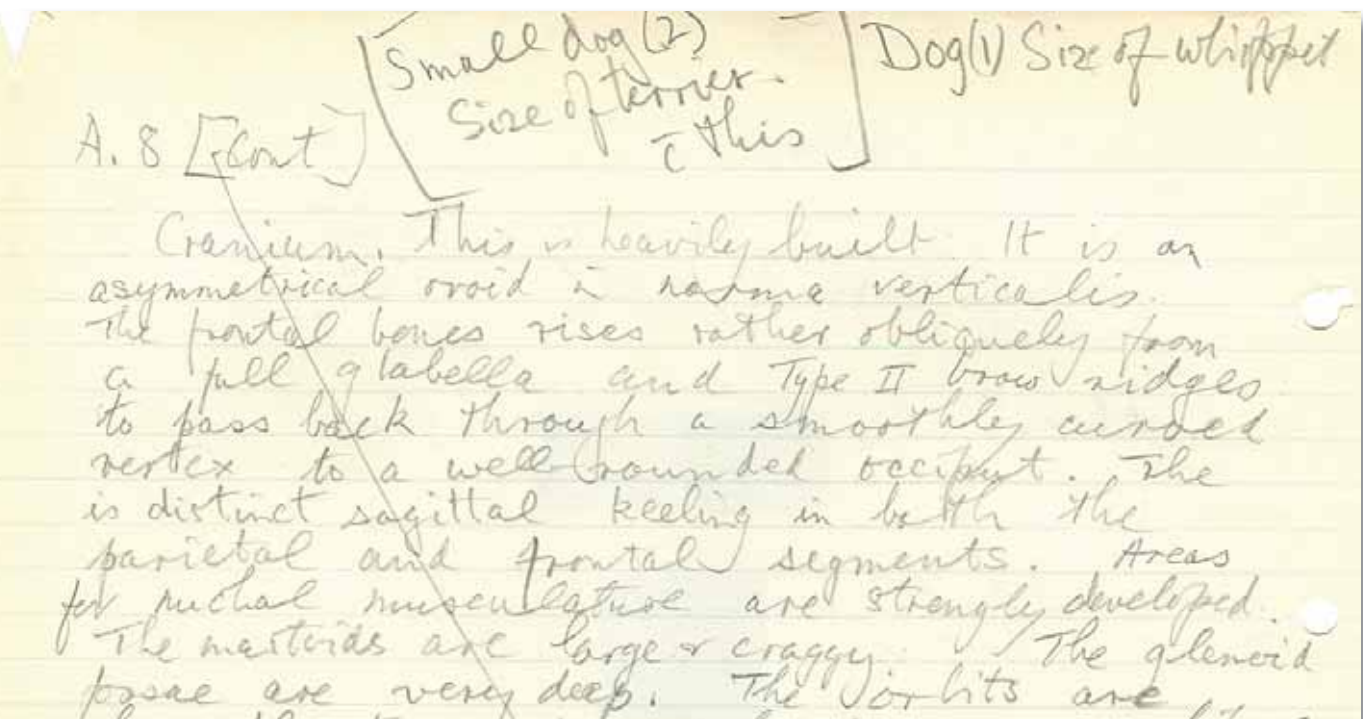 [Small dog (2)
Size of terrier.
c̄ this]
Dog (1) Size of whippet
A. 8 [Cont]
Cranium. This is heavily built. It is an
asymmetrical ovoid in norma verticalis.
The frontal bones rises rather obliquely from
a full glabella and Type II brow ridges
to pass back through a smoothly curved
vertex to a well rounded occiput. The
is distinct sagittal keeling in both the
parietal and frontal segments. Areas
for nuchal musculature are strongly developed.
The mastoids are large & craggy. The glenoid
fossae are very deep. The orbits are